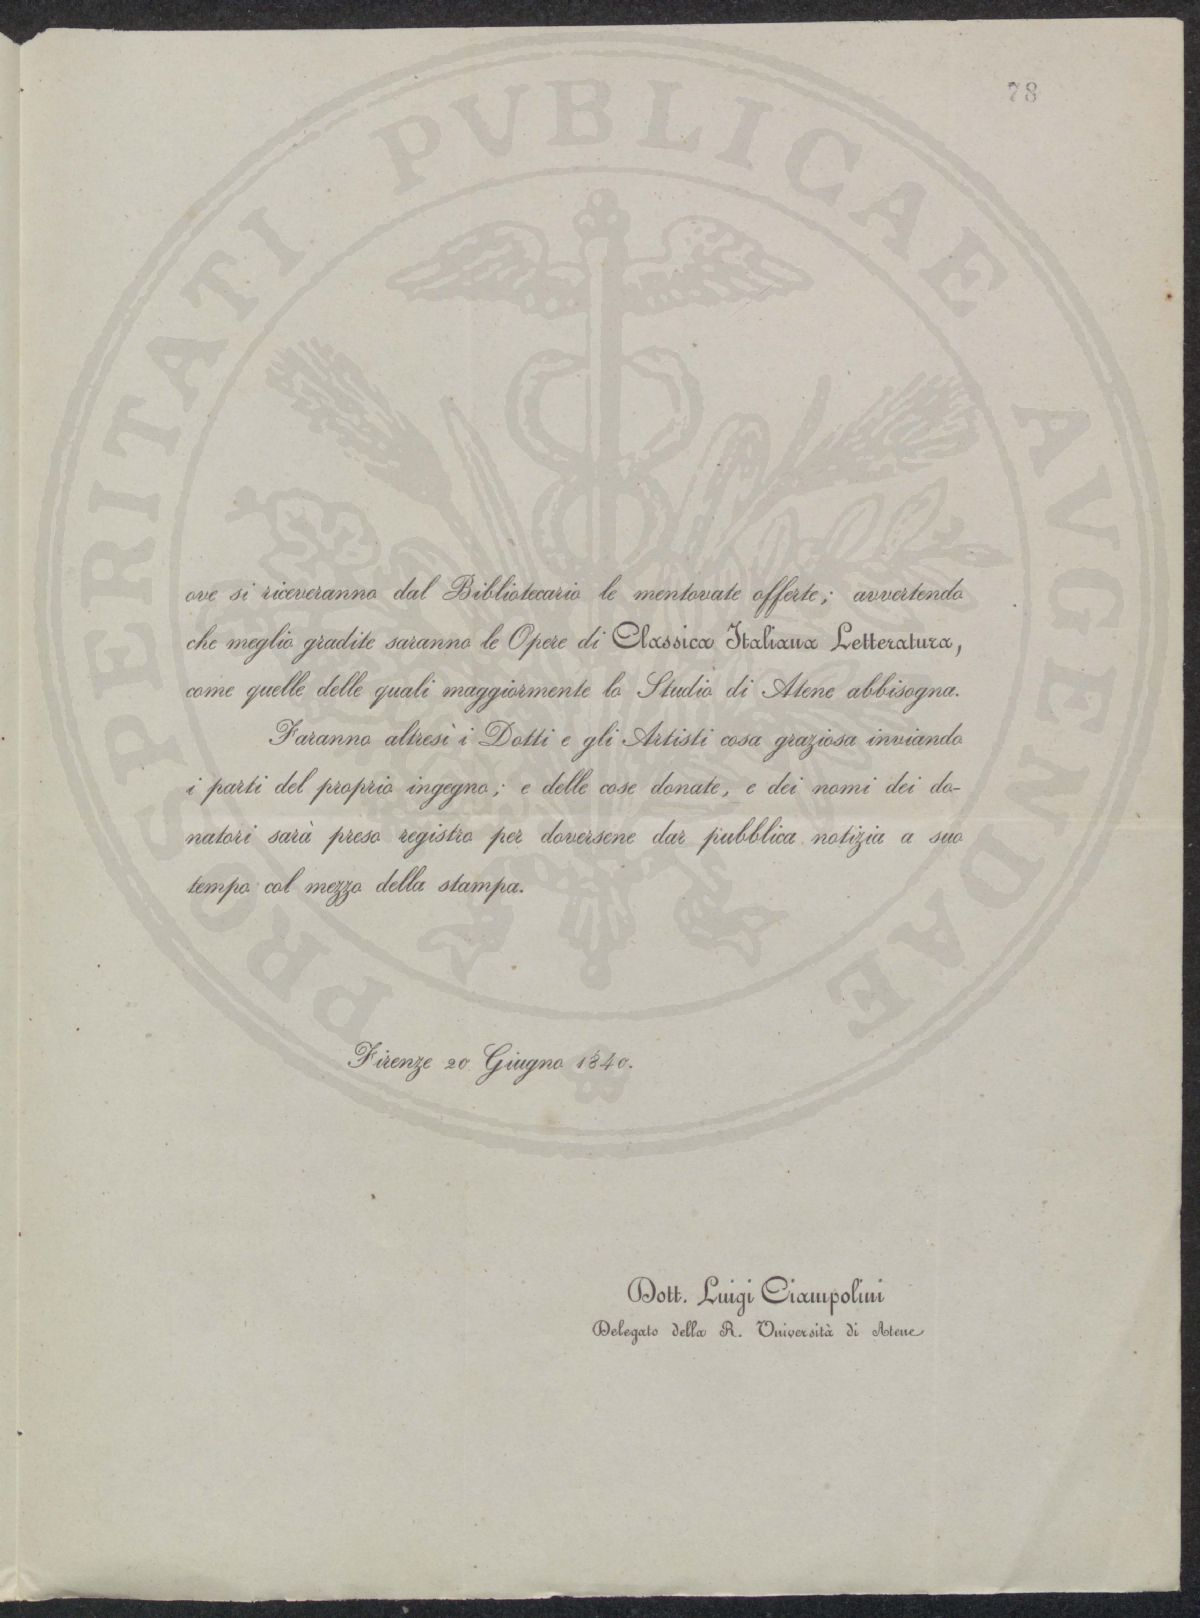 78
PROSPERITATI PVBLICAE AVGENDAE
ove si riceveranno dal Bibliotecario le mentovate offerte; avvertendo
che meglio gradite saranno le Opere di Classica Italiana Letteratura,
come quelle delle quali maggiormente lo Studio di Atene abbisogna.
Faranno altresì i Dotti e gli Artisti cosa graziosa inviando
i parti del proprio ingegno; e delle cose donate, e dei nomi dei do-
natori sarà preso registro per doversene dar pubblica notizia a suo
tempo col mezzo della stampa.
Firenze 20 Giugno 1840.
Dott. Luigi Ciampolini
Delegato della R. Università di Atene